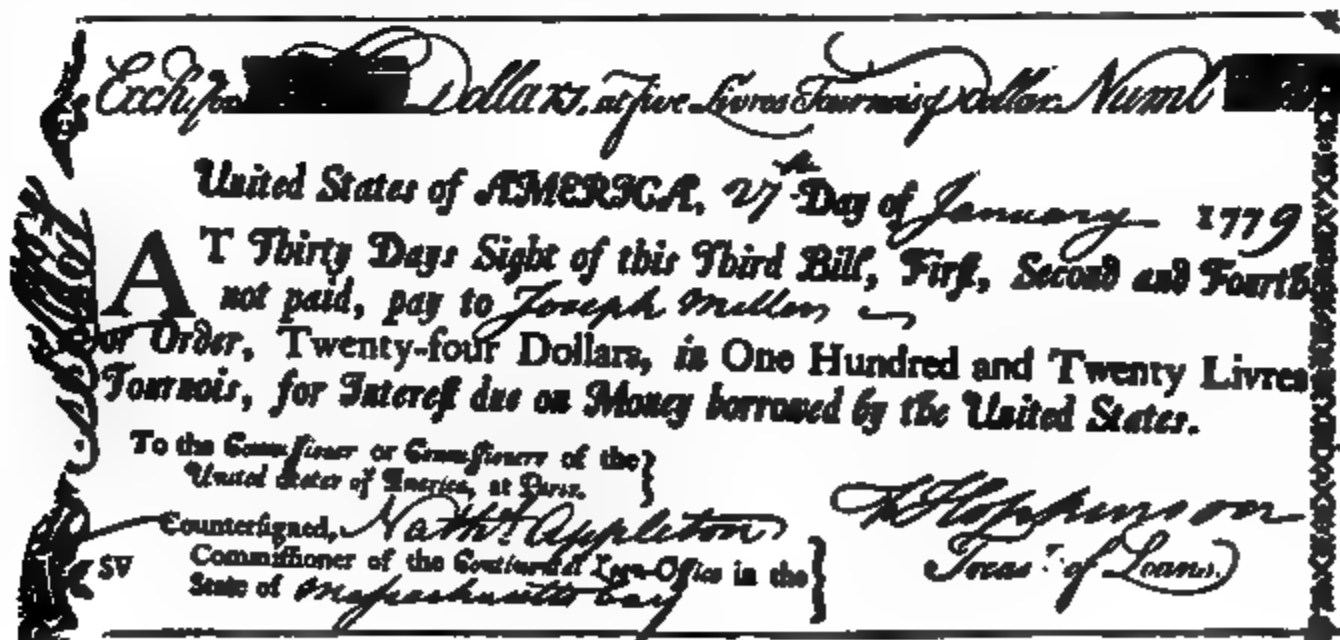 Exch. for Dollars, at five Livres Tournois p. Dollar. Numb
United States of AMERICA, 27th Day of January 1779
AT Thirty Days Sight of this Third Bill, First, Second and Fourth
not paid, pay to Joseph Miller
or Order, Twenty-four Dollars, in One Hundred and Twenty Livres
Tournois, for Interest due on Money borrowed by the United States.
To the Commissioner or Commissioners of the
United States of America, at Paris.
Countersigned, Nathl. Appleton
Commissioner of the Continental Loan-Office in the
State of Massachusetts Bay
F Hopkinson
Treasr. of Loans.